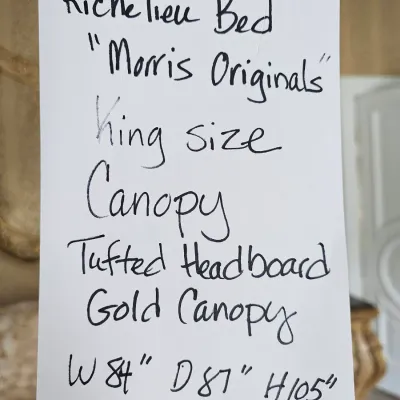 Richelieu Bed
"Morris Originals"
King size
Canopy
Tufted Headboard
Gold Canopy
W 84" D 87" H 105"